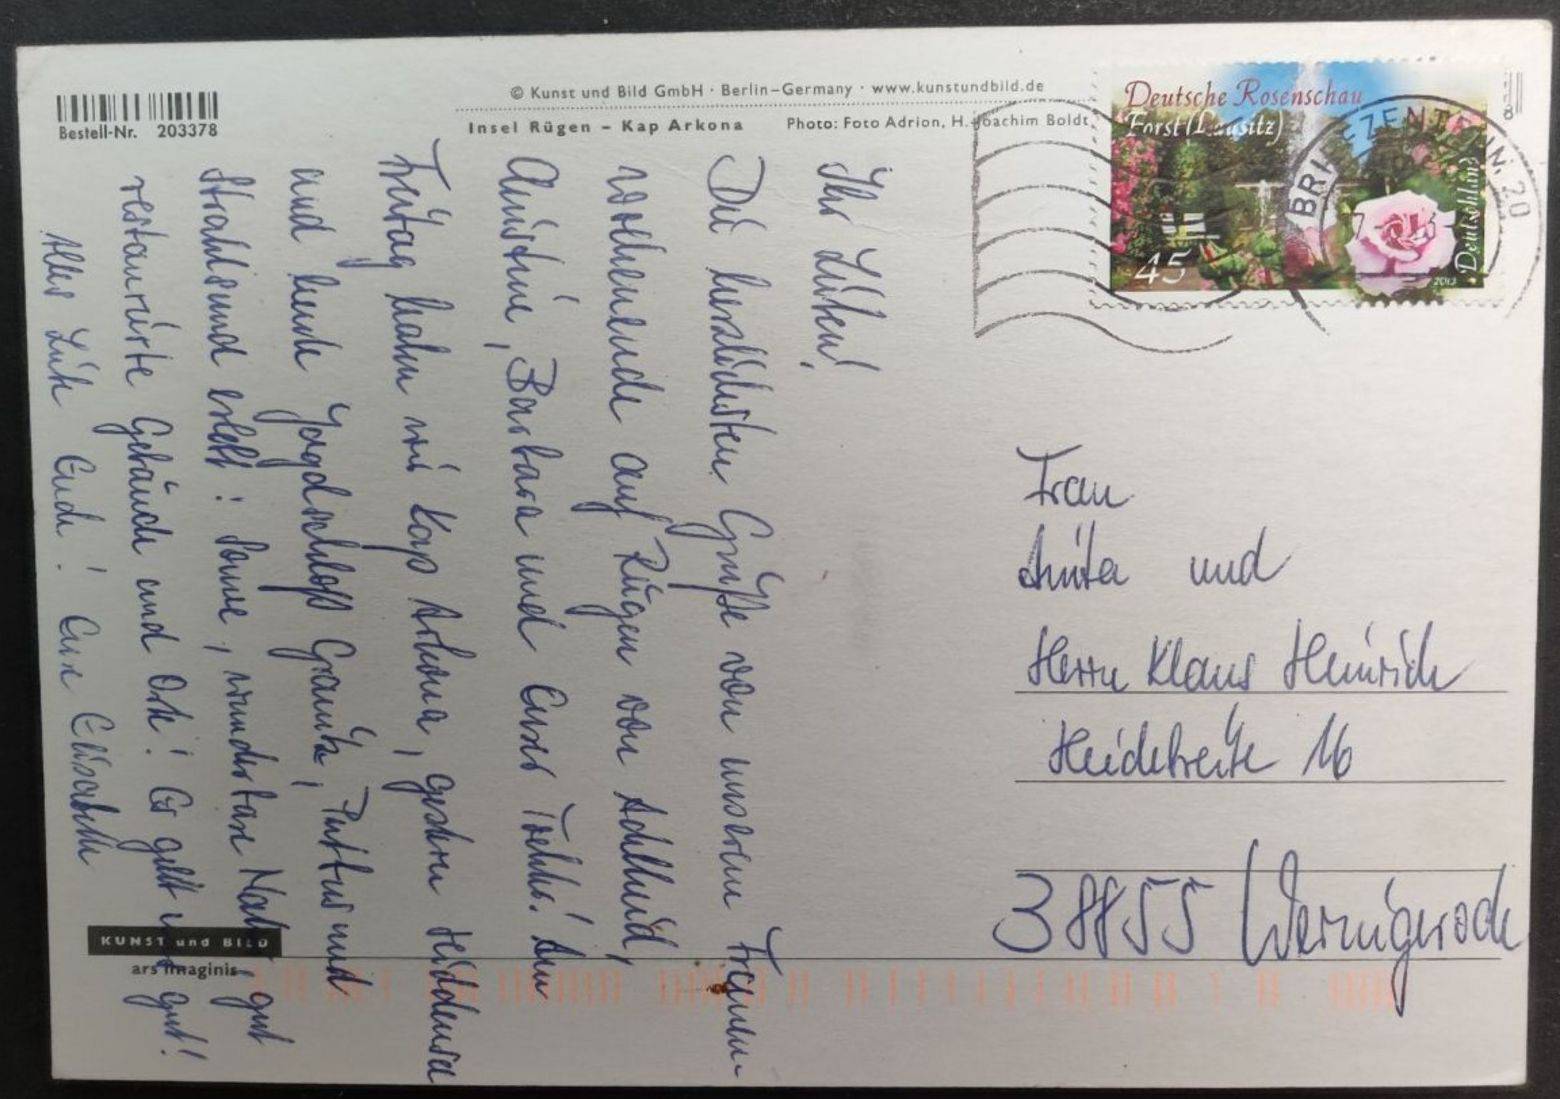 Bestell-Nr. 203378
© Kunst und Bild GmbH · Berlin–Germany · www.kunstundbild.de
Insel Rügen – Kap Arkona Photo: Foto Adrion, H.-Joachim Boldt
Deutsche Rosenschau
Forst (Lausitz)
45
Deutschland
2013
BRIEFZENTRUM 20
Ihr Lieben!
Die herzlichsten Grüße von unserem Frauen-
wochenende auf Rügen von Adelheid,
Christine, Barbara und Eurer Tochter! Am
Freitag haben wir Kap Arkona, gestern Hiddensee
und heute Jagdschloß Granitz, Putbus und
Stralsund erlebt: Sonne, wunderbare Natur, gut
restaurierte Gebäude und Orte! Es geht uns gut!
Alles Liebe Euch! Eure Elisabeth
Frau
Anita und
Herrn Klaus Heinrich
Heidebreite 16
38855 Wernigerode
KUNST und BILD
ars imaginis